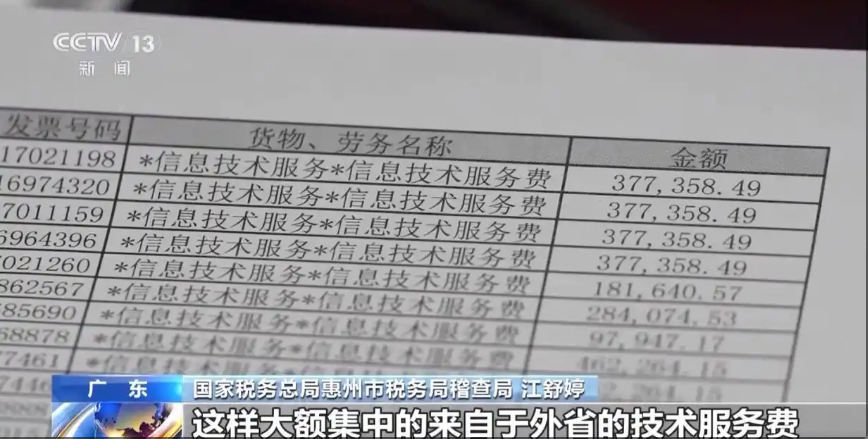 CCTV 13
新闻
发票号码 货物、劳务名称 金额
17021198 *信息技术服务*信息技术服务费 377,358.49
16974320 *信息技术服务*信息技术服务费 377,358.49
7011159 *信息技术服务*信息技术服务费 377,358.49
6964396 *信息技术服务*信息技术服务费 377,358.49
7021260 *信息技术服务*信息技术服务费 181,640.57
862567 *信息技术服务*信息技术服务费 284,074.53
685690 *信息技术服务*信息技术服务费 97,947.17
68878 *信息技术服务*信息技术服务费 462,264.15
77461
广东 国家税务总局惠州市税务局稽查局 江舒婷
这样大额集中的来自于外省的技术服务费